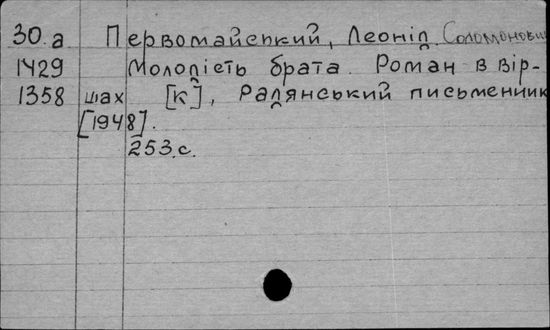 30.а Первомайський, Леонід Соломонович
1429 Молодість брата. Роман в вір-
1358 шах [К], Радянський письменник
[1948].
253.с.